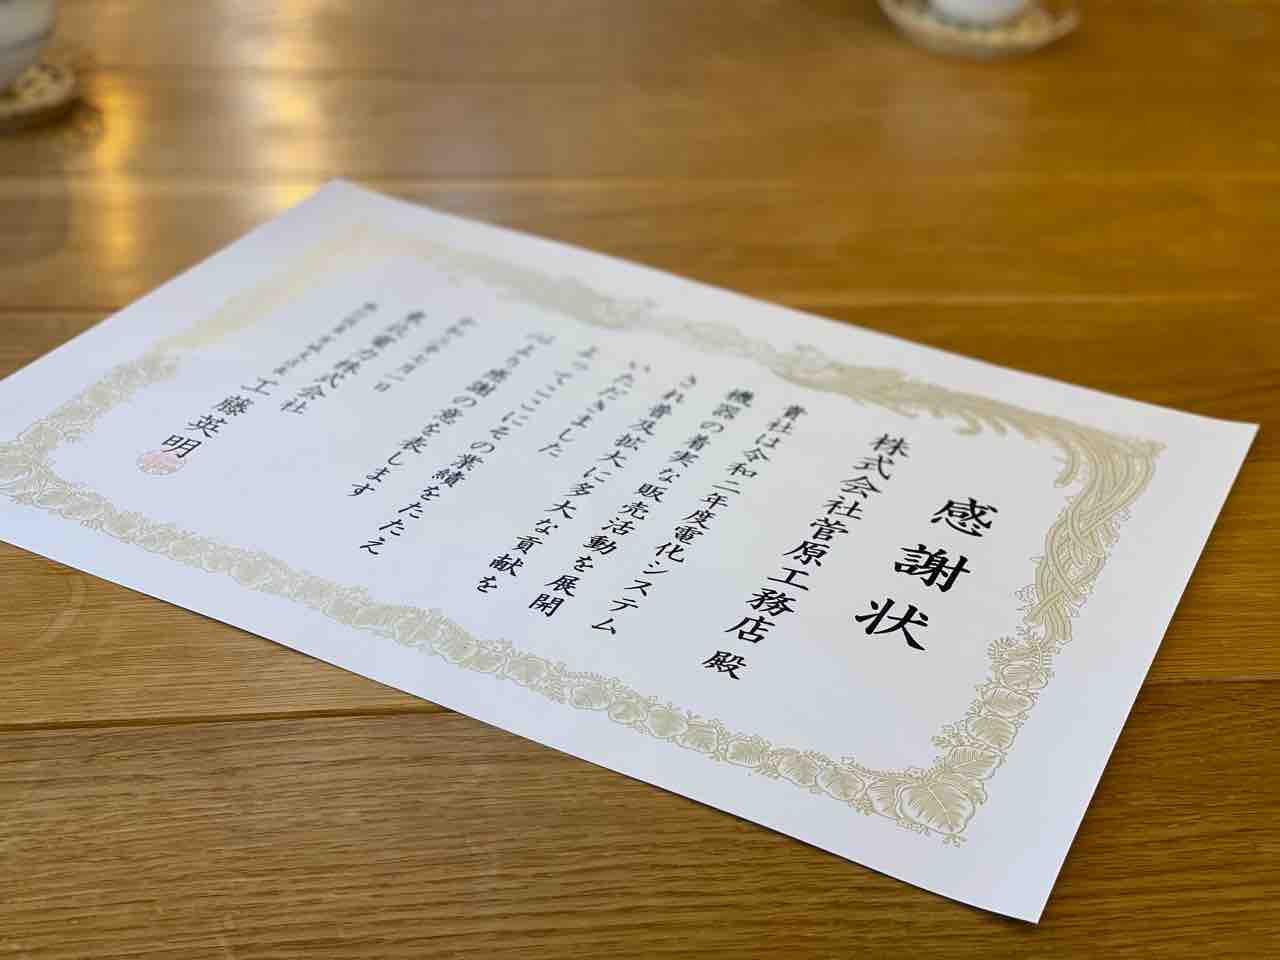 感謝状
株式会社菅原工務店 殿
貴社は令和二年度電化システム
機器の着実な販売活動を展開
され普及拡大に多大な貢献を
いただきました
よってここにその業績をたたえ
心より感謝の意を表します
月一日
電力株式会社
工藤英明